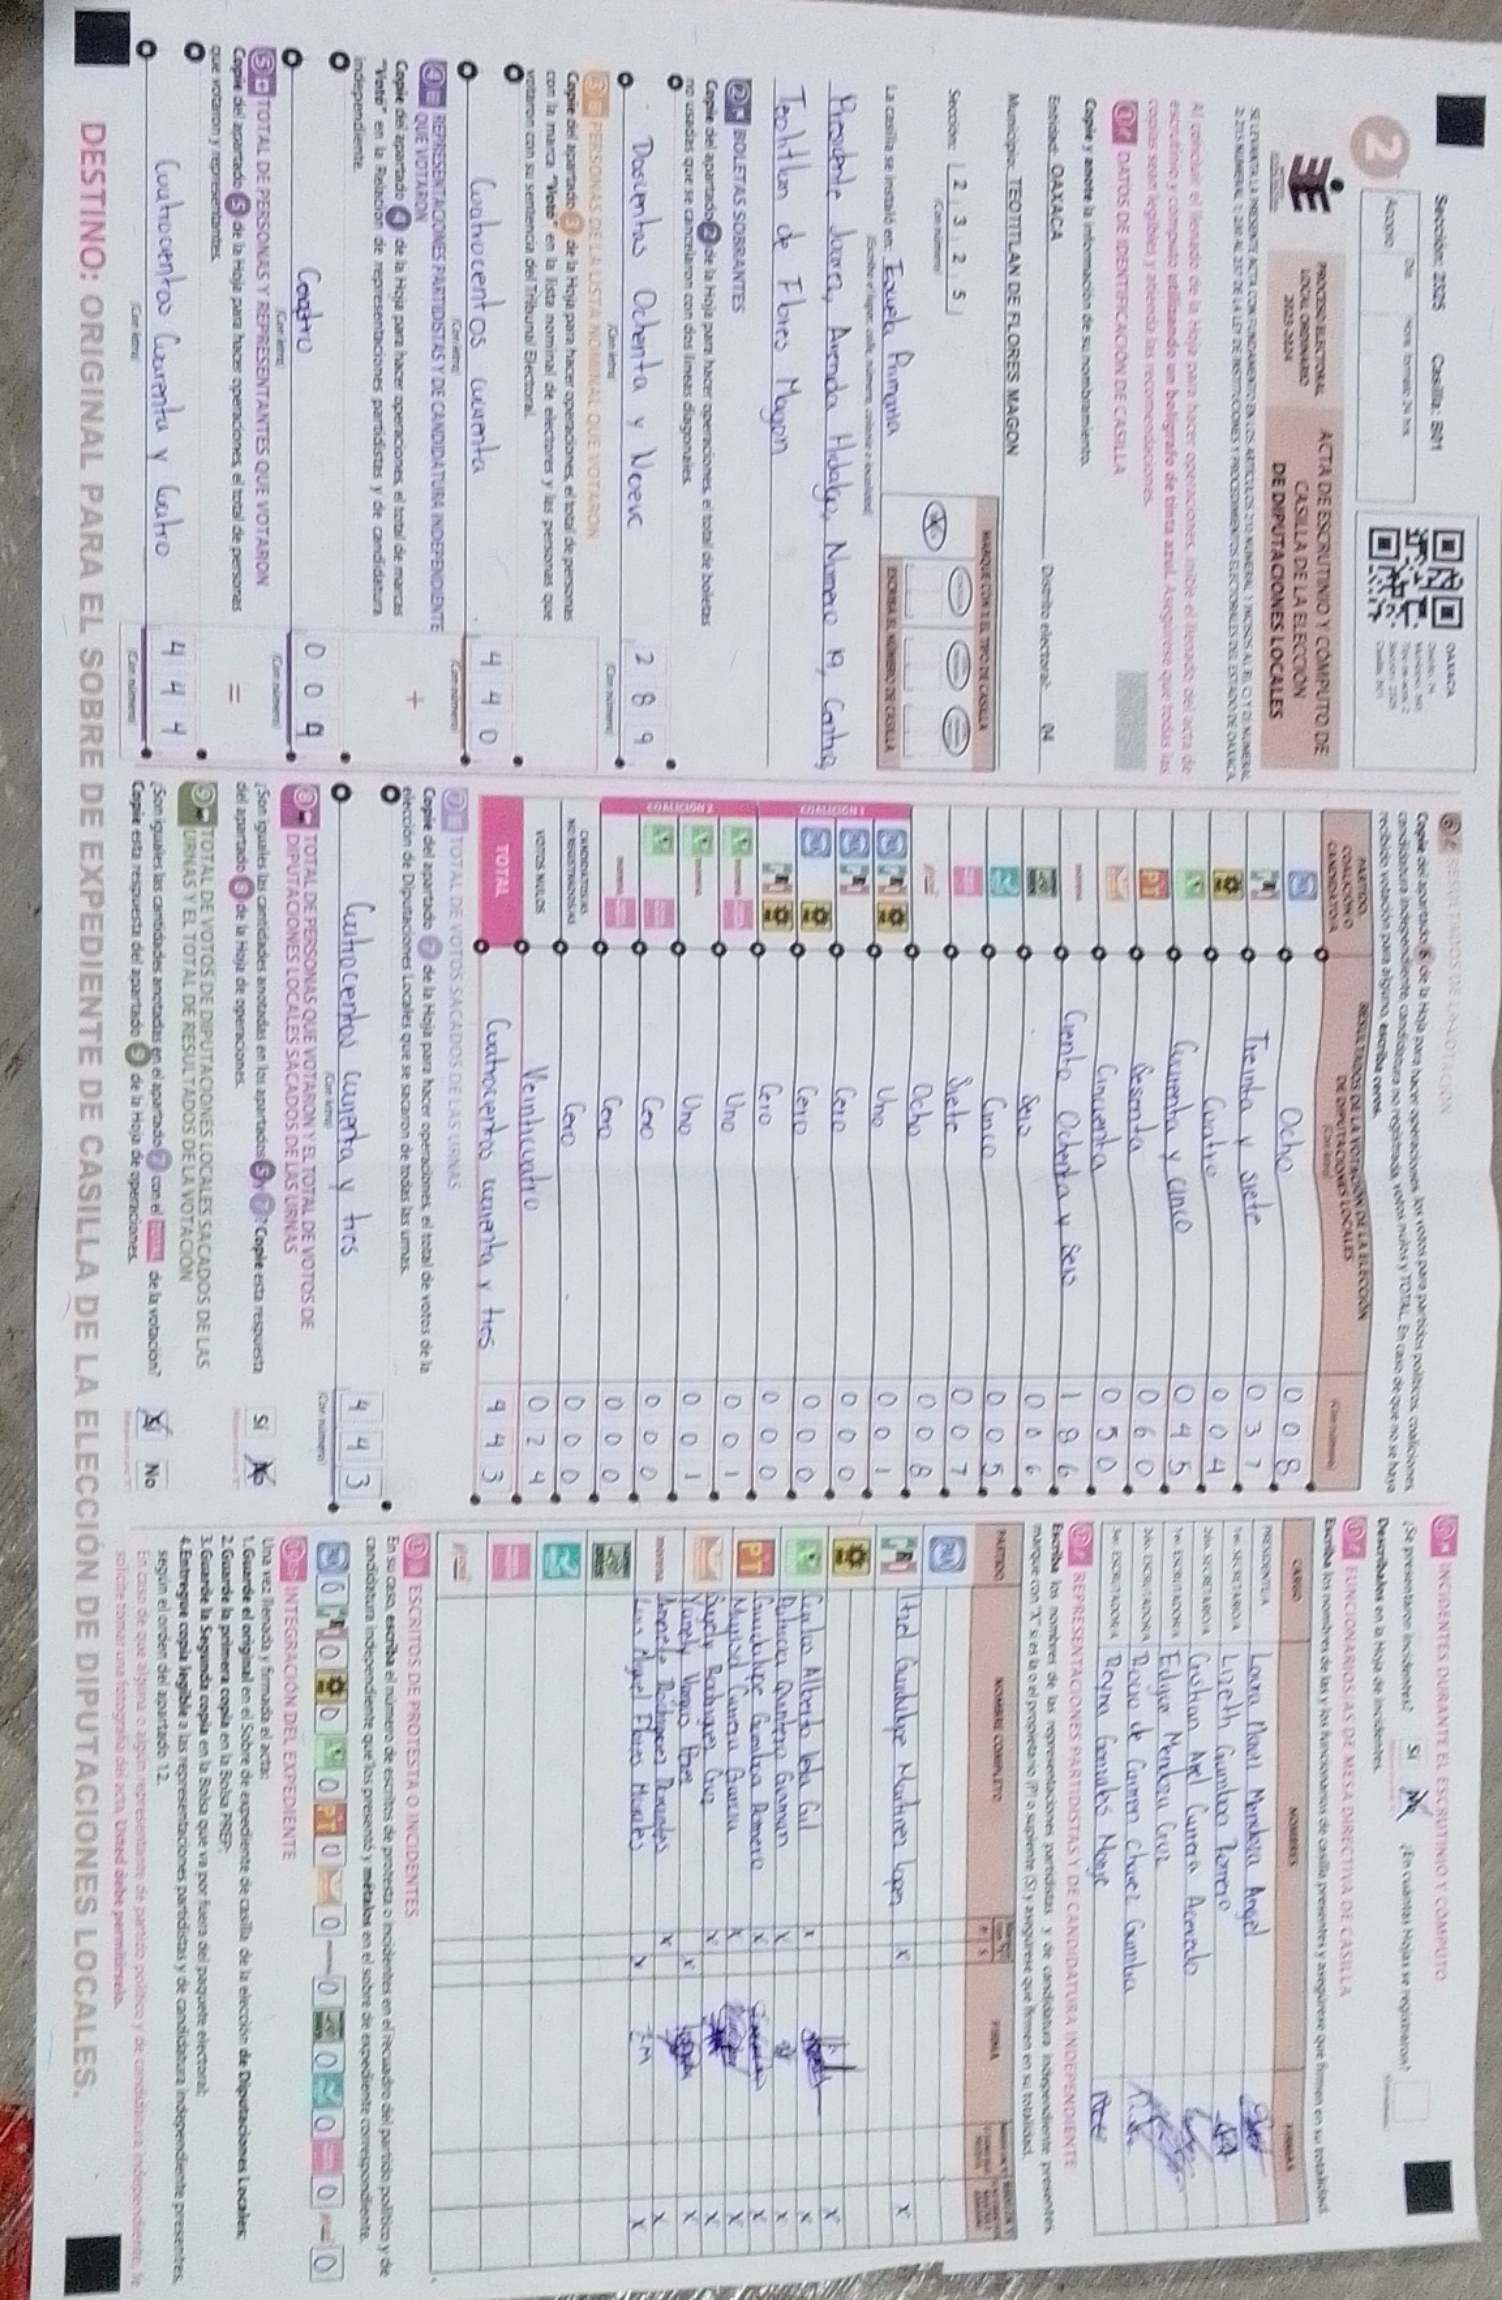 Sección: 2325 Casilla: B01
OAXACA
Acopio
2
PROCESO ELECTORAL
LOCAL ORDINARIO
2023-2024
ACTA DE ESCRUTINIO Y CÓMPUTO DE
CASILLA DE LA ELECCIÓN
DE DIPUTACIONES LOCALES
Al concluir el llenado de la Hoja para hacer operaciones, inicie el llenado del acta de
escrutinio y cómputo utilizando un bolígrafo de tinta azul. Asegúrese que todas las
copias sean legibles y atienda las recomendaciones.
1 DATOS DE IDENTIFICACIÓN DE CASILLA
Copie y anote la información de su nombramiento.
Entidad: OAXACA Distrito electoral: 04
Municipio: TEOTITLAN DE FLORES MAGON
Sección: 2 3 2 5
(Con número)
MARQUE CON X EL TIPO DE CASILLA
ESCRIBA EL NÚMERO DE CASILLA
La casilla se instaló en: Escuela Primaria
(Escriba el lugar: calle, número, colonia o localidad)
Presidente Juarez, Avenida Hidalgo, Numero 19, Centro,
Teotitlan de Flores Magon
2 BOLETAS SOBRANTES
Copie del apartado 2 de la Hoja para hacer operaciones, el total de boletas
no usadas que se cancelaron con dos líneas diagonales.
Doscientas Ochenta y Nueve 2 8 9
(Con letra) (Con número)
3 PERSONAS DE LA LISTA NOMINAL QUE VOTARON
Copie del apartado 3 de la Hoja para hacer operaciones, el total de personas
con la marca "Votó" en la lista nominal de electores y las personas que
votaron con su sentencia del Tribunal Electoral.
Cuatrocentos cuarenta 4 4 0
(Con letra) (Con número)
4 REPRESENTACIONES PARTIDISTAS Y DE CANDIDATURA INDEPENDIENTE
QUE VOTARON
Copie del apartado 4 de la Hoja para hacer operaciones, el total de marcas
"Votó" en la Relación de representaciones partidistas y de candidatura
independiente.
+
Cuatro 0 0 4
(Con letra) (Con número)
5 TOTAL DE PERSONAS Y REPRESENTANTES QUE VOTARON
Copie del apartado 5 de la Hoja para hacer operaciones, el total de personas
que votaron y representantes.
=
Cuatrocentos Cuarenta y Cuatro 4 4 4
(Con letra) (Con número)
6 RESULTADOS DE LA VOTACIÓN
Copie del apartado 6 de la Hoja para hacer operaciones, los votos para partidos políticos, coaliciones,
candidatura independiente, candidatura no registrada, votos nulos y TOTAL. En caso de que no se haya
recibido votación para alguno, escriba ceros.
PARTIDO,
COALICIÓN O
CANDIDATURA
RESULTADOS DE LA VOTACIÓN DE LA ELECCIÓN
DE DIPUTACIONES LOCALES
(Con letra) (Con número)
PAN Ocho 0 0 8
PRI Treinta y siete 0 3 7
PRD Cuatro 0 0 4
Cuarenta y cinco 0 4 5
PT Sesenta 0 6 0
Cincuenta 0 5 0
morena Ciento Ochenta y Seis 1 8 6
Seis 0 0 6
Cinco 0 0 5
Siete 0 0 7
Ocho 0 0 8
COALICIÓN 1
Uno 0 0 1
Cero 0 0 0
Cero 0 0 0
Cero 0 0 0
COALICIÓN 2
Uno 0 0 1
Uno 0 0 1
Cero 0 0 0
Cero 0 0 0
CANDIDATURAS
NO REGISTRADAS Cero 0 0 0
VOTOS NULOS Veinticuatro 0 2 4
TOTAL Cuatrocientos cuarenta y tres 4 4 3
7 TOTAL DE VOTOS SACADOS DE LAS URNAS
Copie del apartado 7 de la Hoja para hacer operaciones, el total de votos de la
elección de Diputaciones Locales que se sacaron de todas las urnas.
Cuatrocentos cuarenta y tres 4 4 3
(Con letra) (Con número)
8 TOTAL DE PERSONAS QUE VOTARON Y EL TOTAL DE VOTOS DE
DIPUTACIONES LOCALES SACADOS DE LAS URNAS
¿Son iguales las cantidades anotadas en los apartados 5 y 7? Copie esta respuesta
del apartado 8 de la Hoja de operaciones. Sí No
9 TOTAL DE VOTOS DE DIPUTACIONES LOCALES SACADOS DE LAS
URNAS Y EL TOTAL DE RESULTADOS DE LA VOTACIÓN
¿Son iguales las cantidades anotadas en el apartado 7 con el TOTAL de la votación?
Copie esta respuesta del apartado 9 de la Hoja de operaciones. Sí No
10 INCIDENTES DURANTE EL ESCRUTINIO Y CÓMPUTO
¿Se presentaron incidentes? Sí No ¿En cuántas Hojas se registraron?
Descríbalos en la Hoja de incidentes.
11 FUNCIONARIOS/AS DE MESA DIRECTIVA DE CASILLA
Escriba los nombres de las y los funcionarios de casilla presentes y asegúrese que firmen en su totalidad.
CARGO NOMBRES FIRMAS
PRESIDENTE/A Laura Mendoza Angel
1er. SECRETARIO/A Lizeth Gamboa Romero
2do. SECRETARIO/A Cristian Carrera Acevedo
1er. ESCRUTADOR/A Edgar Mendoza Cruz
2do. ESCRUTADOR/A Rocio de Carmen Chavez Gamboa
3er. ESCRUTADOR/A Reyna Gonzales Monje
12 REPRESENTACIONES PARTIDISTAS Y DE CANDIDATURA INDEPENDIENTE
Escriba los nombres de las representaciones partidistas y de candidatura independiente presentes,
marque con "X" si es la o el propietario (P) o suplente (S) y asegúrese que firmen en su totalidad.
PARTIDO NOMBRE COMPLETO P S FIRMA
Itzel Guadalupe Martinez Lopez X X
Carlos Alberto Gil X X
Patricia Quintero Guzman X X
Guadalupe Gamboa Romero X X
Carrera Garcia X X
Rodriguez Cruz X X
Vargas X X
Rodriguez X X
Luis Miguel Flores Morales X X
13 ESCRITOS DE PROTESTA O INCIDENTES
En su caso, escriba el número de escritos de protesta o incidentes en el recuadro del partido político y de
candidatura independiente que los presentó y métalos en el sobre de expediente correspondiente.
0 0 0 0 0 0 0 0 0 0 0
14 INTEGRACIÓN DEL EXPEDIENTE
Una vez llenada y firmada el acta:
1. Guarde el original en el Sobre de expediente de casilla de la elección de Diputaciones Locales;
2. Guarde la primera copia en la Bolsa PREP;
3. Guarde la Segunda copia en la Bolsa que va por fuera del paquete electoral;
4. Entregue copia legible a las representaciones partidistas y de candidatura independiente presentes,
según el orden del apartado 12.
En caso de que alguna o algún representante de partido político y de candidatura independiente, le
solicite tomar una fotografía del acta, Usted debe permitírselo.
DESTINO: ORIGINAL PARA EL SOBRE DE EXPEDIENTE DE CASILLA DE LA ELECCIÓN DE DIPUTACIONES LOCALES.